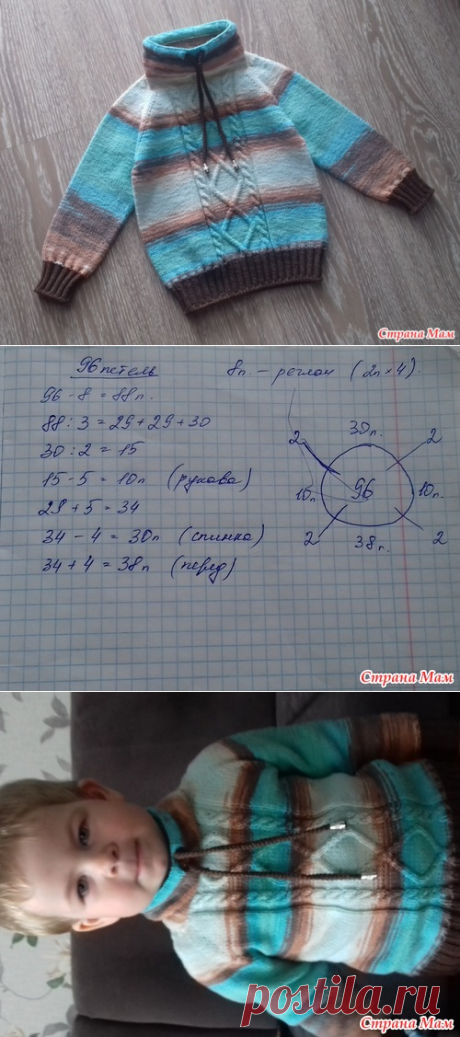 Страна Мам
96 петель
8п - реглан (2п × 4).
96 - 8 = 88п.
88 : 3 = 29 + 29 + 30
30 : 2 = 15
15 - 5 = 10п (рукава)
29 + 5 = 34
34 - 4 = 30п (спинка)
34 + 4 = 38п (перед)
30п.
2 2
10п 96 10п.
2 2
38п.
Страна Мам
postila.ru
Страна Мам